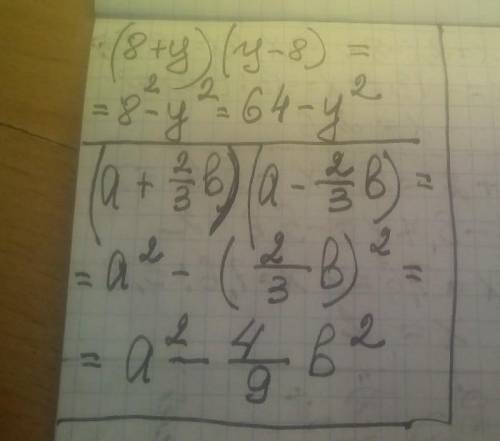 (8+y)(y-8) =
= 8² - y² = 64 - y²
(a + 2/3 в)(a - 2/3 в) =
= a² - (2/3 в)² =
= a² - 4/9 в²